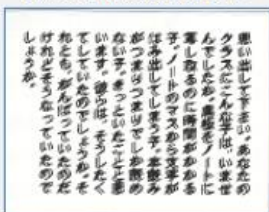 思い出して下さい。あなたの
クラスにこんな子は、いませ
んでしたか。黒板をノートに
写しとるのに時間がかかる
子、ノートのマスから文字が
はみ出してしまう子、本読み
がつまりつまりでしか読め
ない子。きっといたことと思
います。彼らは、そうしたく
てしていたのでしょうか。そ
れとも、がんばっていたのだ
けれどそうなっていたので
しょうか。